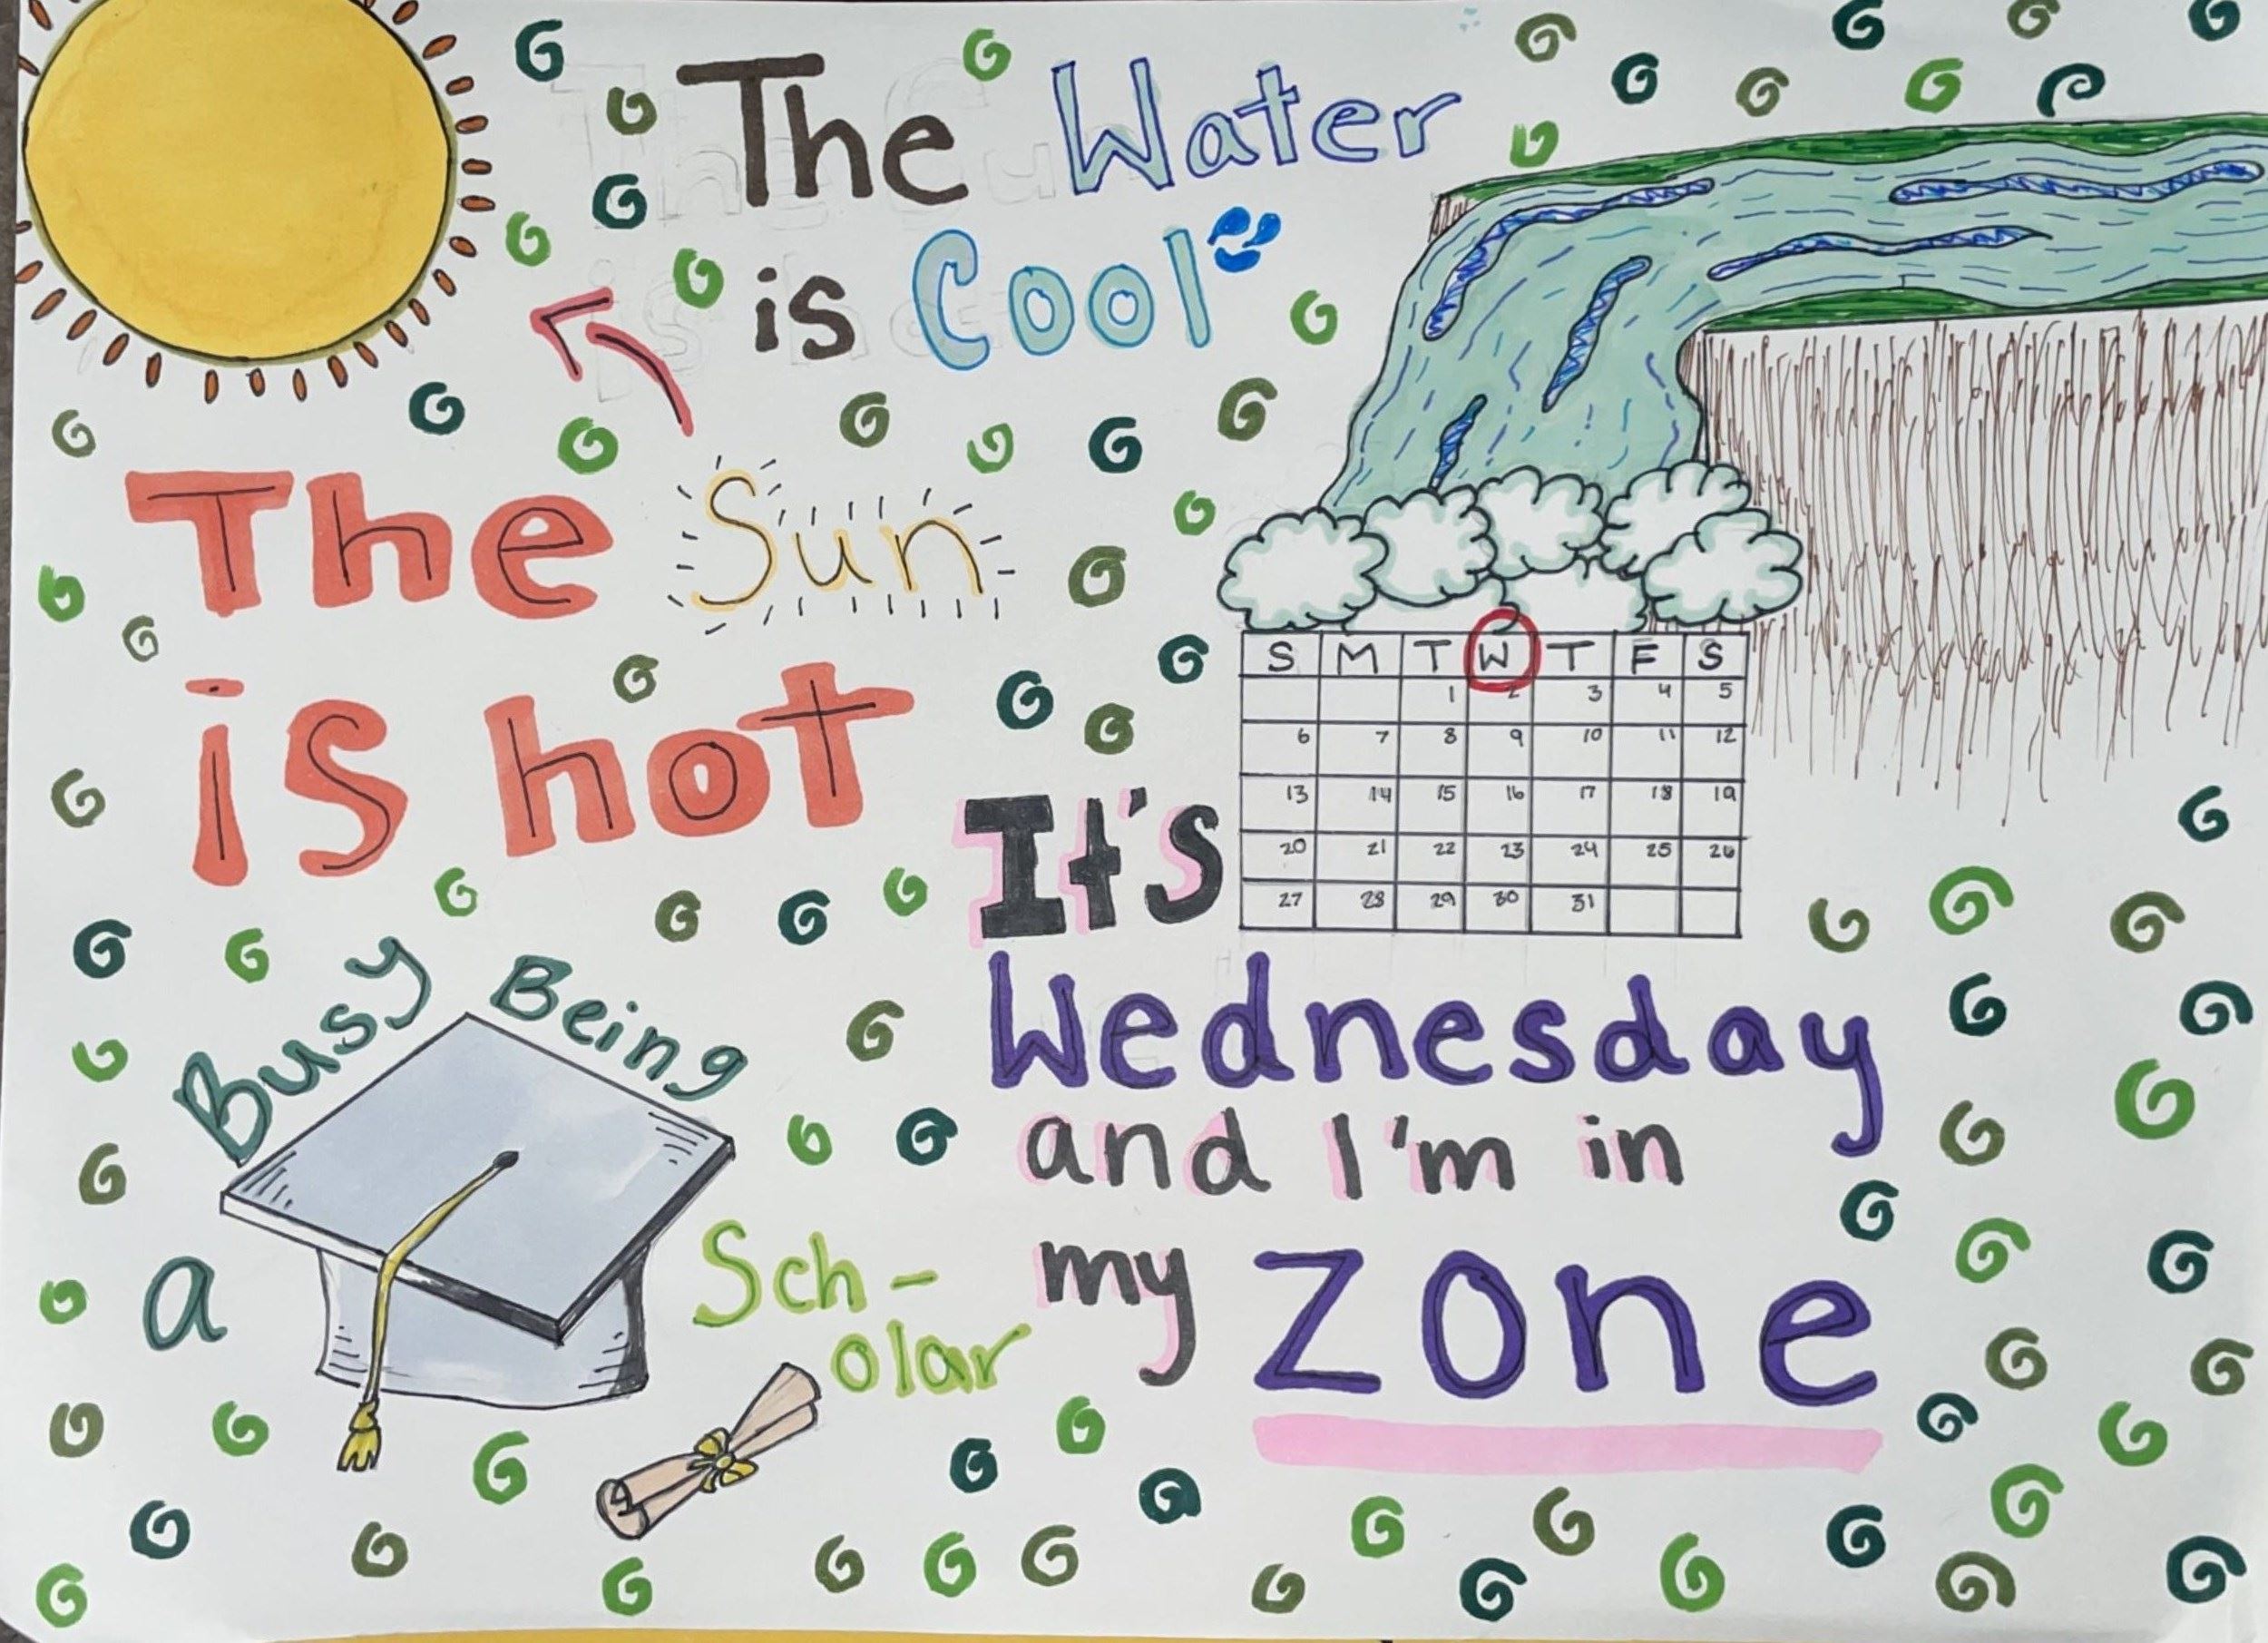 The Water
is Cool
The Sun
is hot
S M T W T F S
1 2 3 4 5
6 7 8 9 10 11 12
13 14 15 16 17 18 19
20 21 22 23 24 25 26
27 28 29 30 31
It's
Wednesday
and I'm in
my zone
Busy Being
a Sch-
olar